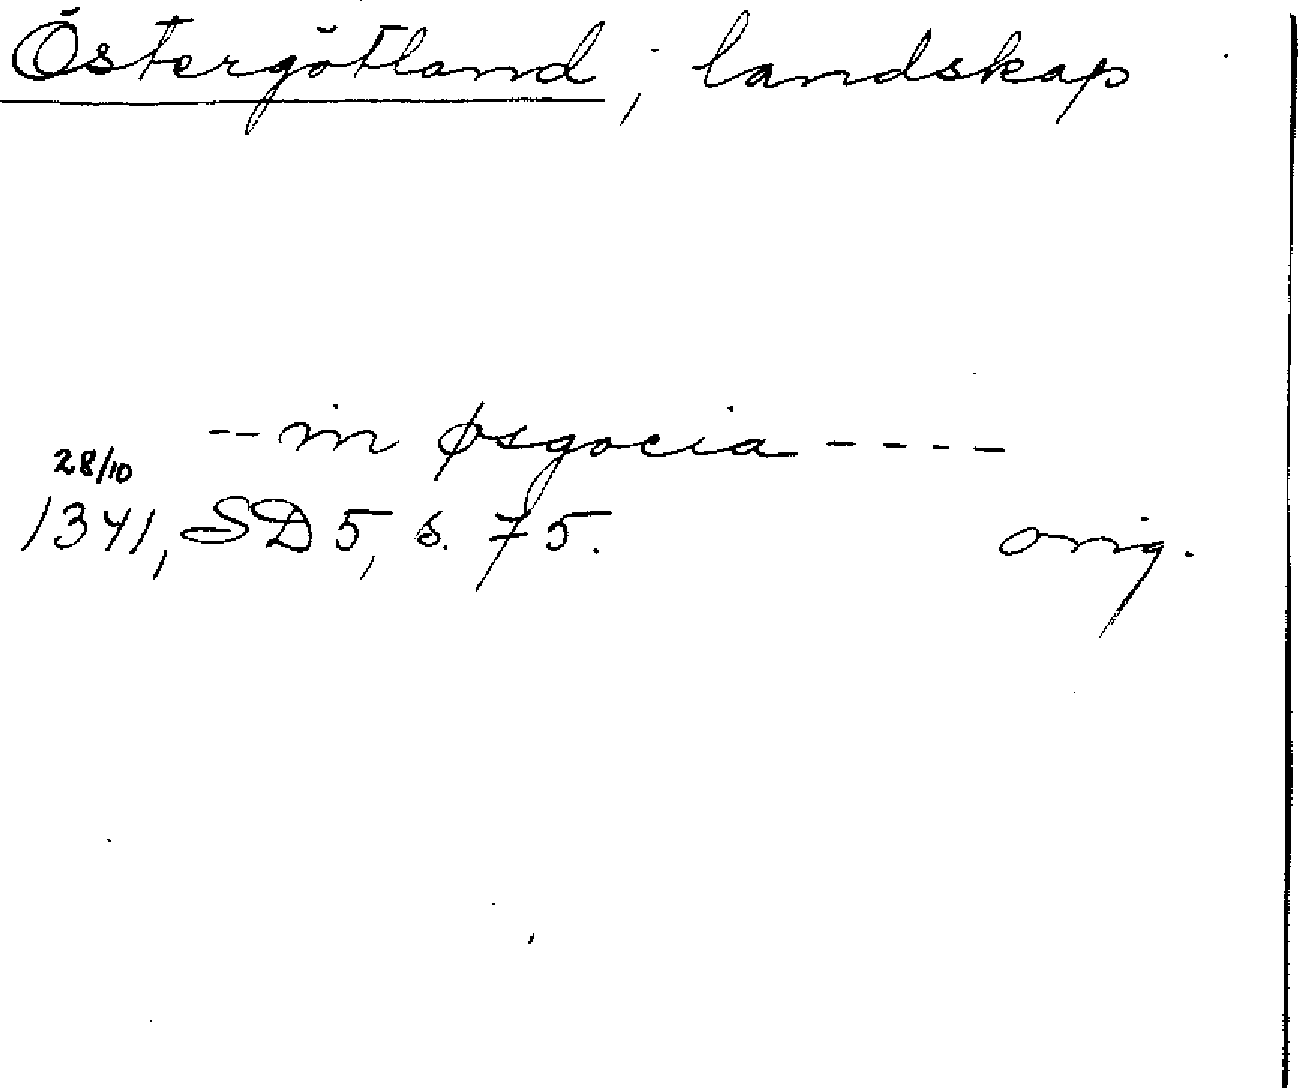 Östergötland, landskap
-- in øsgocia ----
28/10
1341, SD 5, s. 75. orig.